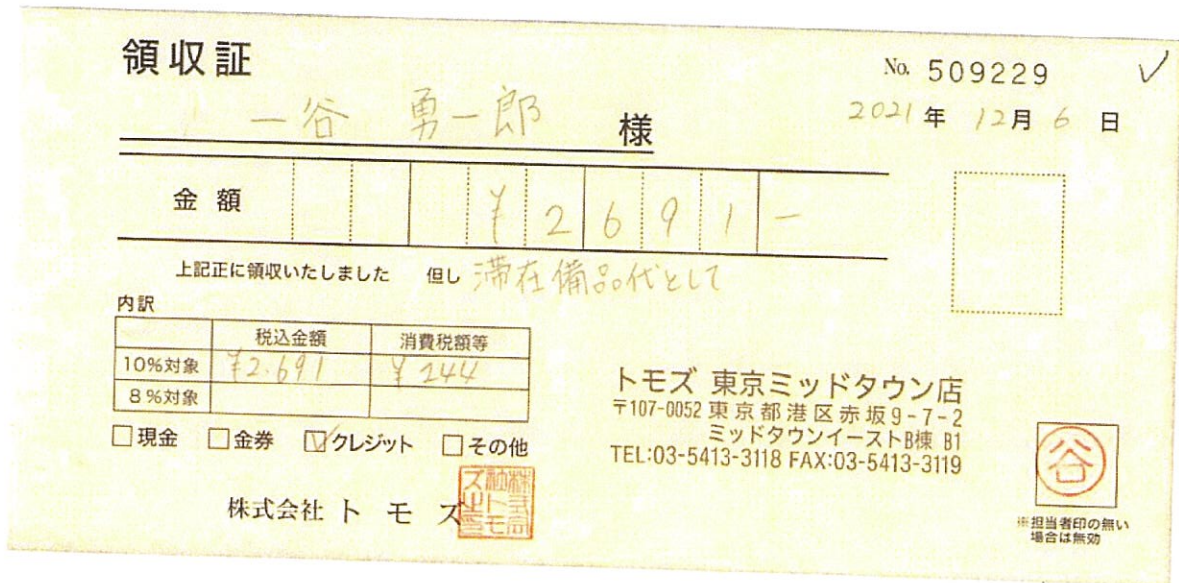 領収証
No. 509229
2021年 12月 6日
一谷 勇一郎 様
金額 ¥2691-
上記正に領収いたしました 但し 滞在備品代として
内訳
税込金額 消費税額等
10%対象 ¥2.691 ¥244
8%対象
□現金 □金券 ☑クレジット □その他
トモズ 東京ミッドタウン店
〒107-0052 東京都港区赤坂9-7-2
ミッドタウンイーストB棟 B1
TEL:03-5413-3118 FAX:03-5413-3119
株式会社 トモズ
谷
※担当者印の無い
場合は無効